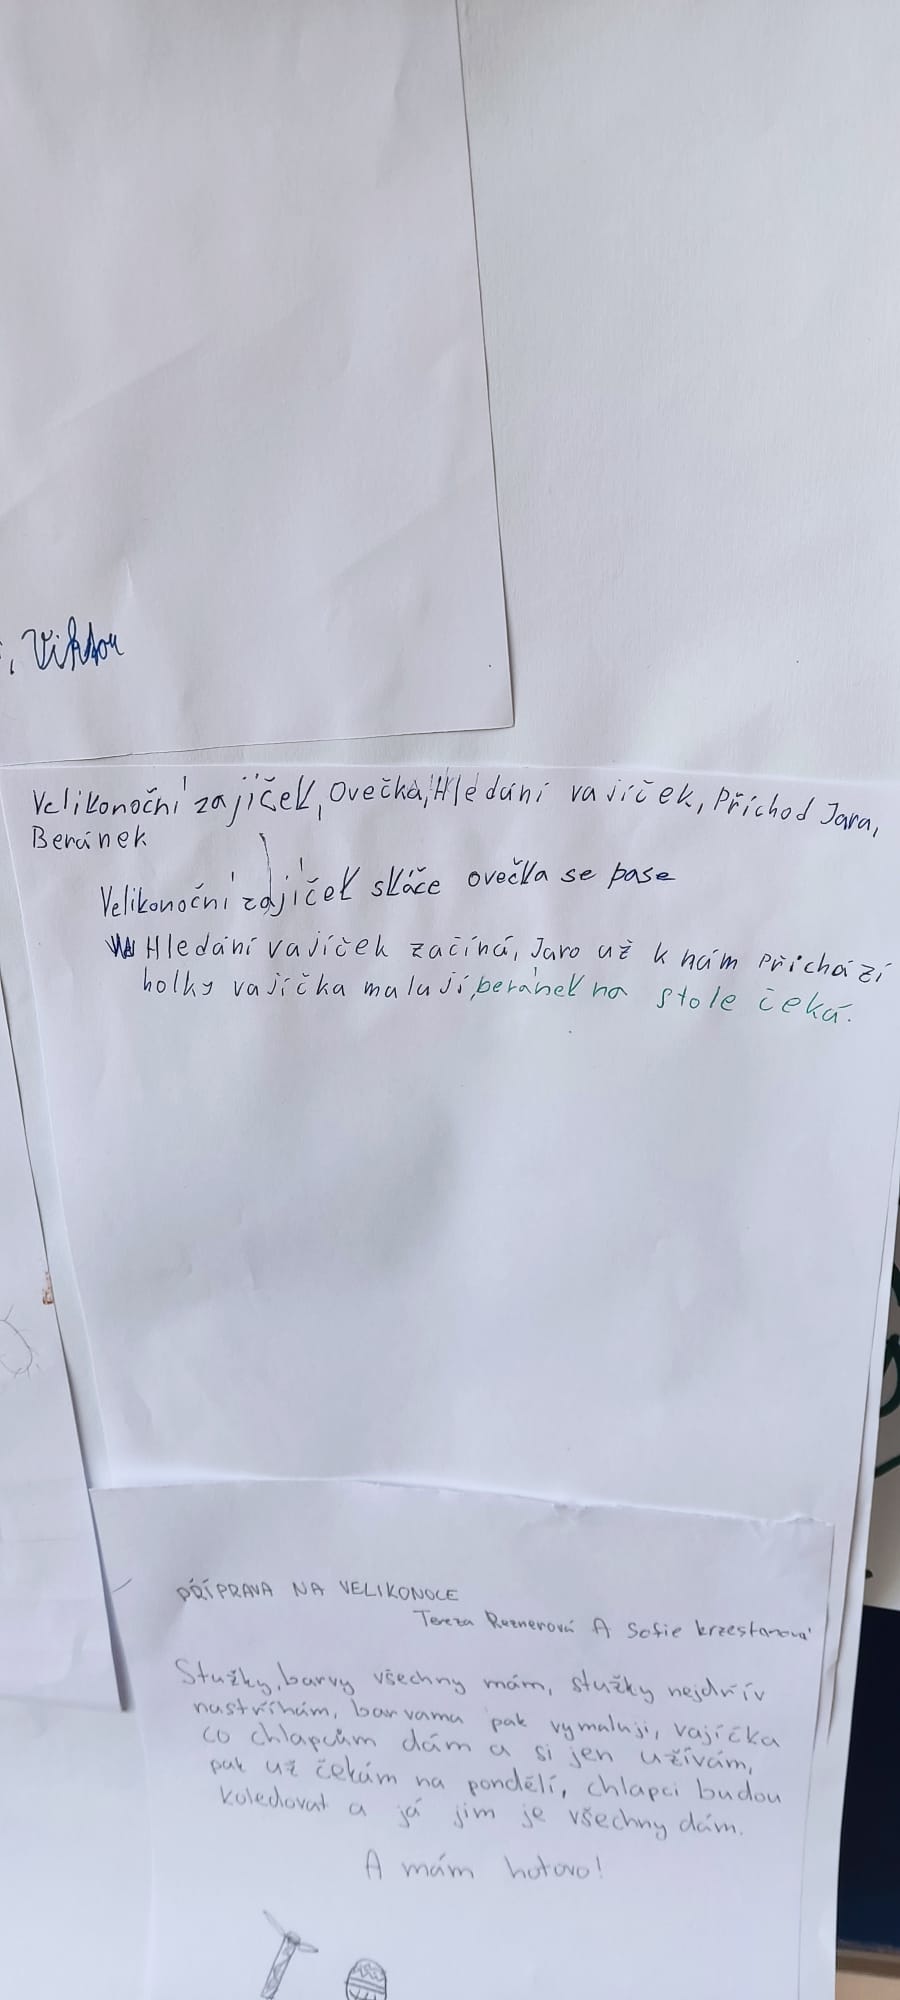 , Viktor
Velikonoční zajíček, Ovečka, Hledání vajíček, Příchod Jara,
Beránek
Velikonoční zajíček skáče ovečka se pase
Hledání vajíček začíná, Jaro už k nám přichází
holky vajíčka malují, beránek na stole čeká.
PŘÍPRAVA NA VELIKONOCE
Tereza Reznerová A Sofie krzestanová
Stužky, barvy všechny mám, stužky nejdřív
nastříhám, barvama pak vymaluji, vajíčka
co chlapcům dám a si jen užívám,
pak už čekám na pondělí, chlapci budou
koledovat a já jim je všechny dám.
A mám hotovo!